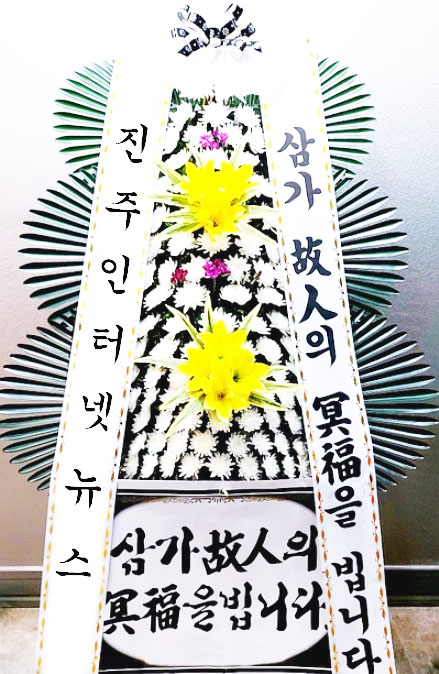 진주인터넷뉴스
삼가 故人의 冥福을 빕니다
삼가 故人의
冥福을 빕니다